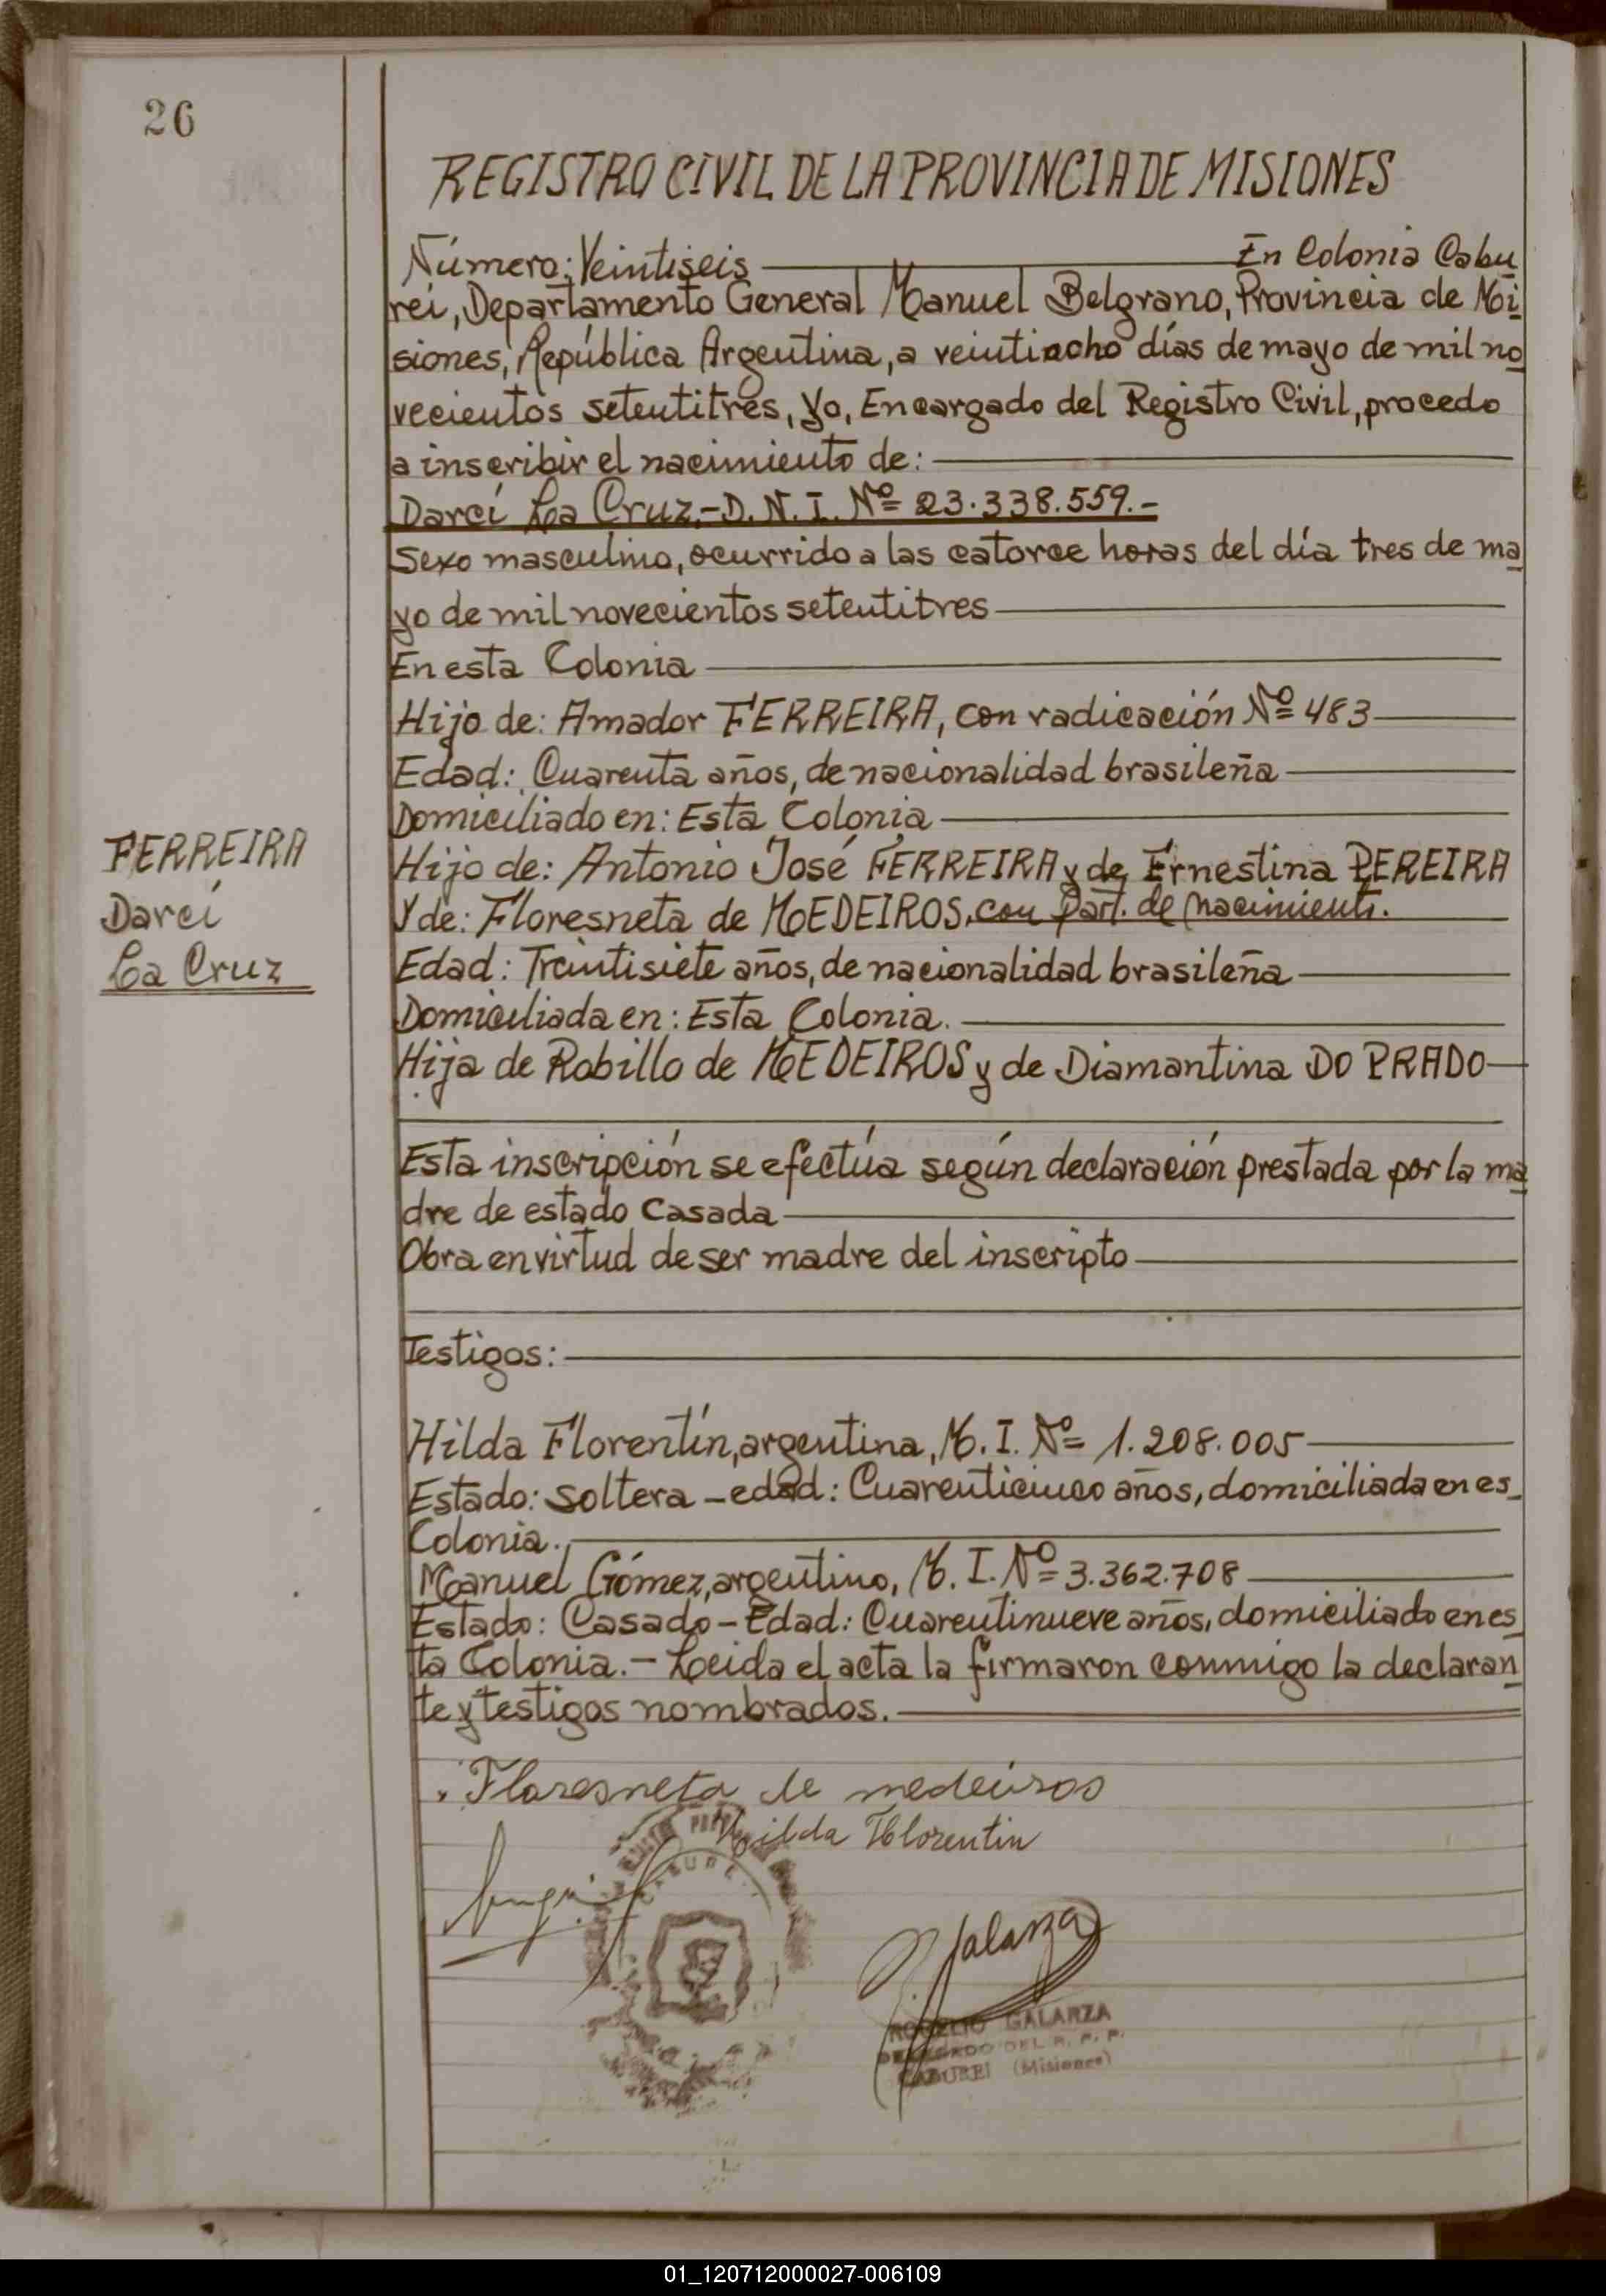 26
REGISTRO CIVIL DE LA PROVINCIA DE MISIONES
Número: Veintiseis En Colonia Cabu
reí, Departamento General Manuel Belgrano, Provincia de Mi
siones, República Argentina, a veintiocho días de mayo de mil no
vecientos setentitrés, yo, Encargado del Registro Civil, procedo
a inscribir el nacimiento de:
Darcí La Cruz.- D. N. I. Nº 23.338.559.-
Sexo masculino, ocurrido a las catorce horas del día tres de ma
yo de mil novecientos setentitres
En esta Colonia
Hijo de: Amador FERREIRA, con radicación Nº 483
Edad: Cuarenta años, de nacionalidad brasileña
Domiciliado en: Esta Colonia
Hijo de: Antonio José FERREIRA y de Ernestina PEREIRA
FERREIRA
Darcí
La Cruz
Y de: Floresneta de MEDEIROS, con Part. de Nacimiento.
Edad: Treintisiete años, de nacionalidad brasileña
Domiciliada en: Esta Colonia.
Hija de Robillo de MEDEIROS y de Diamantina DO PRADO
Esta inscripción se efectúa según declaración prestada por la ma
dre de estado Casada
Obra en virtud de ser madre del inscripto
Testigos:
Hilda Florentín, argentina, M. I. Nº 1.208.005
Estado: soltera - edad: Cuarenticinco años, domiciliada en es_
Colonia.
Manuel Gómez, argentino, M. I. Nº 3.362.708
Estado: Casado - Edad: Cuarentinueve años, domiciliado en es
ta Colonia. - Leida el acta la firmaron conmigo la declaran
te y testigos nombrados.
Floresneta de medeiros
Hilda Florentin
CABURE
Galarza
ROGELIO GALARZA
DELEGADO DEL R. P. P.
CABUREI (Misiones)
01_120712000027-006109